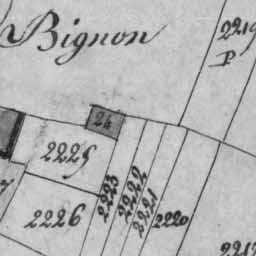 Bignon
2219
P
24
2225
2223
2222
2221
2220
2226
7
2217